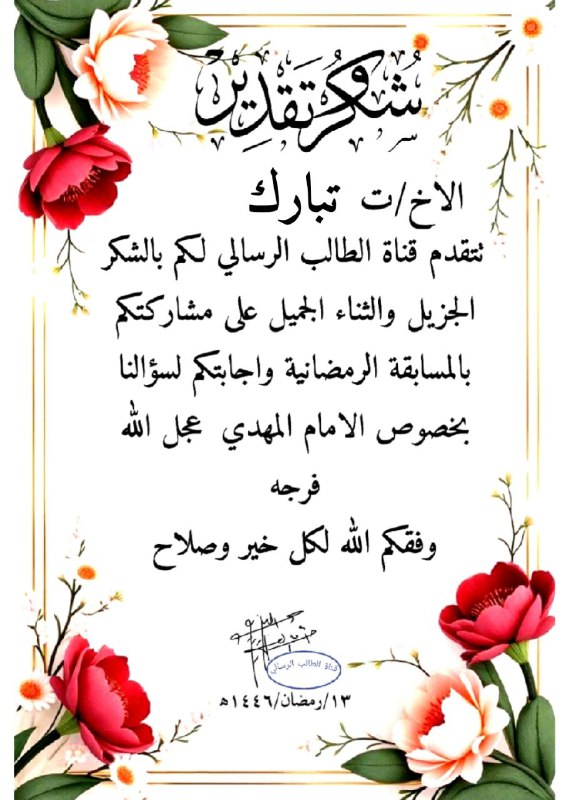 شكر وتقدير
الاخ/ت تبارك
نتقدم قناة الطالب الرسالي لكم بالشكر
الجزيل والثناء الجميل على مشاركتكم
بالمسابقة الرمضانية واجابتكم لسؤالنا
بخصوص الامام المهدي عجل الله
فرجه
وفقكم الله لكل خير وصلاح
قناة الطالب الرسالي
١٣/رمضان/١٤٤٦هـ